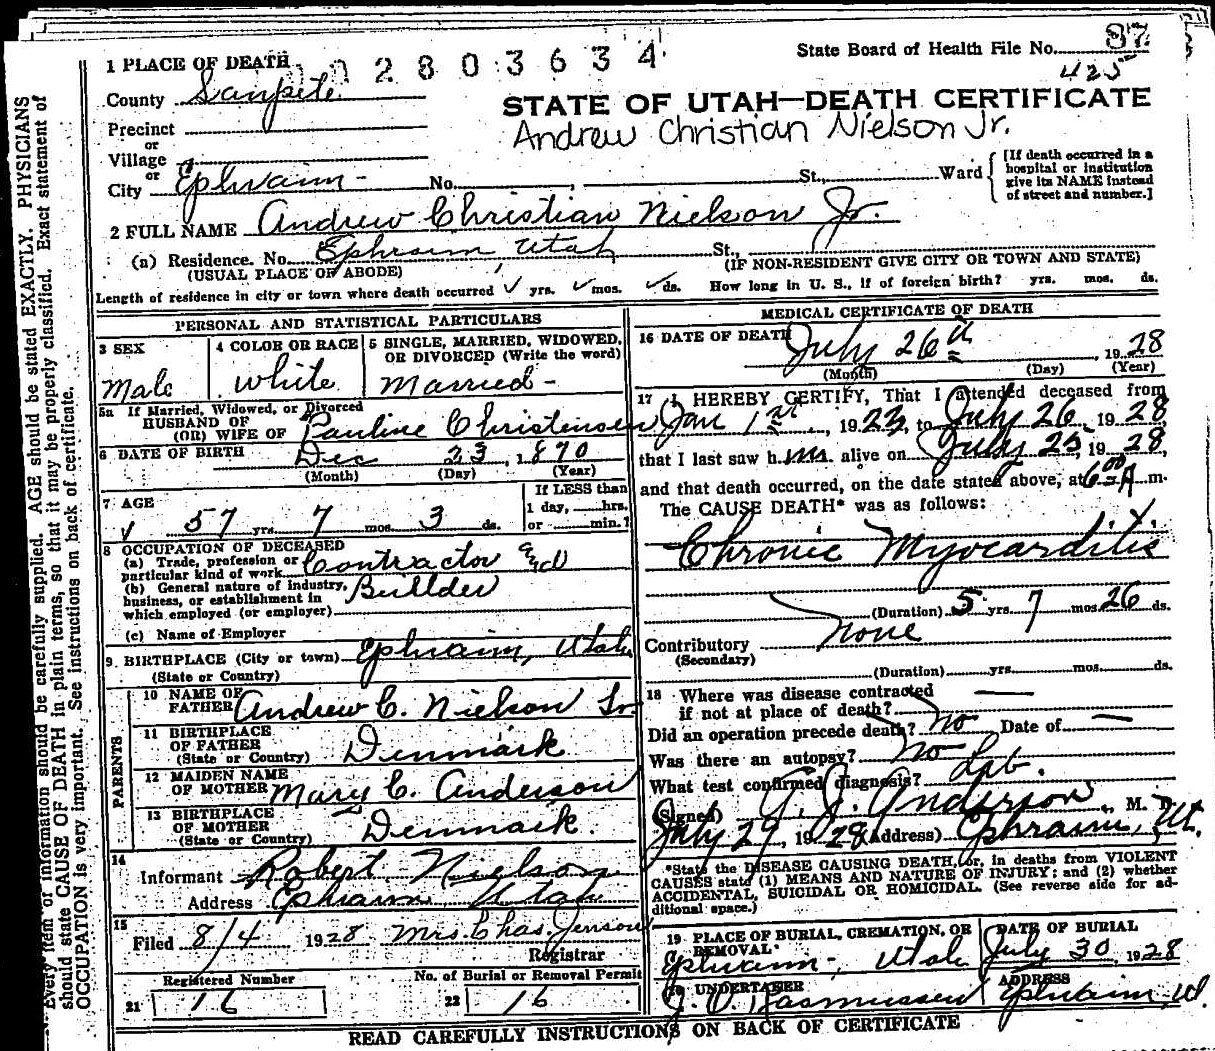 1 PLACE OF DEATH 0 2 8 0 3 6 3 4
State Board of Health File No. 87
425
County Sanpete
STATE OF UTAH—DEATH CERTIFICATE
Andrew Christian Nielson Jr.
Precinct
or
Village
or
City Ephraim No. St., Ward
[If death occurred in a hospital or institution give its NAME instead of street and number.]
2 FULL NAME Andrew Christian Nielson Jr.
(a) Residence. No. Ephraim, Utah St.,
(USUAL PLACE OF ABODE) (IF NON-RESIDENT GIVE CITY OR TOWN AND STATE)
Length of residence in city or town where death occurred ✓ yrs. ✓ mos. ✓ ds. How long in U. S., if of foreign birth? yrs. mos. ds.
PERSONAL AND STATISTICAL PARTICULARS
3 SEX
Male
4 COLOR OR RACE
White
5 SINGLE, MARRIED, WIDOWED, OR DIVORCED (Write the word)
Married
5a If Married, Widowed, or Divorced
HUSBAND OF
(OR) WIFE OF Pauline Christensen
6 DATE OF BIRTH Dec 23, 1870
(Month) (Day) (Year)
7 AGE
57 yrs. 7 mos. 3 ds.
If LESS than
1 day, hrs.
or min.?
8 OCCUPATION OF DECEASED
(a) Trade, profession or particular kind of work Contractor and
(b) General nature of industry, business, or establishment in which employed (or employer) Builder
(c) Name of Employer
9. BIRTHPLACE (City or town) Ephraim, Utah
(State or Country)
PARENTS
10 NAME OF FATHER Andrew C. Nielson Sr.
11 BIRTHPLACE OF FATHER (State or Country) Denmark
12 MAIDEN NAME OF MOTHER Mary C. Anderson
13 BIRTHPLACE OF MOTHER (State or Country) Denmark.
14
Informant Robert Nielson
Address Ephraim Utah
15
Filed 8/4 1928 Mrs. Chas. Jenson
Registrar
Registered Number
21 16
No. of Burial or Removal Permit
22 16
MEDICAL CERTIFICATE OF DEATH
16 DATE OF DEATH July 26th, 1928
(Month) (Day) (Year)
17 I HEREBY CERTIFY, That I attended deceased from
Jan 1st, 1923, to July 26, 1928,
that I last saw him alive on July 25, 1928,
and that death occurred, on the date stated above, at 6:00 A m.
The CAUSE DEATH* was as follows:
Chronic Myocarditis
(Duration) 5 yrs. 7 mos. 26 ds.
Contributory None
(Secondary)
(Duration) yrs. mos. ds.
18 Where was disease contracted
if not at place of death? —
Did an operation precede death? No Date of —
Was there an autopsy? No
What test confirmed diagnosis? Lab.
(Signed) Anderson, M. D.
July 29, 1928 (Address) Ephraim, Ut.
*State the DISEASE CAUSING DEATH, or, in deaths from VIOLENT
CAUSES state (1) MEANS AND NATURE OF INJURY; and (2) whether
ACCIDENTAL, SUICIDAL OR HOMICIDAL. (See reverse side for additional space.)
19 PLACE OF BURIAL, CREMATION, OR REMOVAL
Ephraim, Utah
DATE OF BURIAL
July 30, 1928
20 UNDERTAKER
Rasmussen
ADDRESS
Ephraim Ut.
READ CAREFULLY INSTRUCTIONS ON BACK OF CERTIFICATE
Every item of information should be carefully supplied. AGE should be stated EXACTLY. PHYSICIANS
should state CAUSE OF DEATH in plain terms, so that it may be properly classified. Exact statement of
OCCUPATION is very important. See instructions on back of certificate.